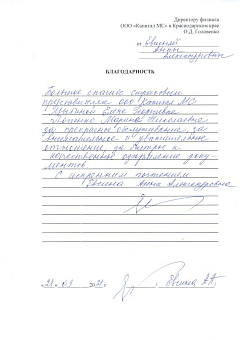 Директору филиала
ООО «Капитал МС» в Краснодарском крае
О.Д. Головенко
от Евгиной
Анны
Александровны
БЛАГОДАРНОСТЬ
Большое спасибо страховым
представителям ООО Капитал МС
Елене
Марине Николаевне
за прекрасное обслуживание, за
внимательное и уважительное
отношение, за быстрое и
качественное оформление доку-
ментов.
С искренним почтением
Евгина Анна Александровна
Евгина А.А.